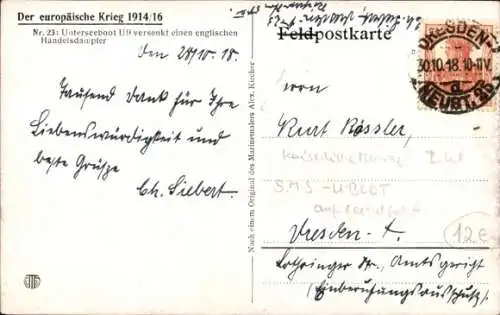 Der europäische Krieg 1914/16
Nr. 23: Unterseeboot U9 versenkt einen englischen
Handelsdampfer
den 28/10. 18.
Tausend Dank für Ihre
Liebenswürdigkeit und
beste Grüsze
Ch. Siebert.
Nach einem Original des Marinemalers Alex. Kircher
Feldpostkarte
DRESDEN-
30.10.18. 10-11V.
d
NEUST. 06
Herrn
Kurt Rössler,
SMS-
12€
Dresden-A.
Lothringer Str., Amtsgericht
(Einberufungsausschusz)